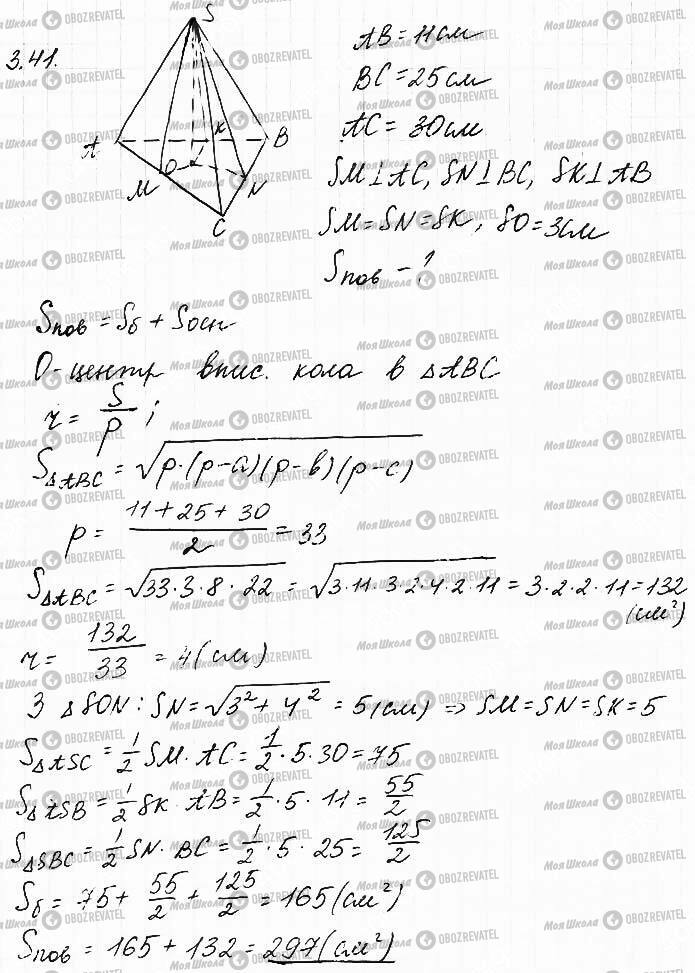 3.41.
S
A
B
K
O
M
N
C
AB = 11 см
BC = 25 см
AC = 30 см
SM ⊥ AC, SN ⊥ BC, SK ⊥ AB
SM = SN = SK, SO = 3 см
Sпов - ?
Sпов = Sб + Sосн
O - центр впис. кола в △ABC
r = S/p ;
S△ABC = √(p·(p-a)(p-b)(p-c))
p = (11 + 25 + 30)/2 = 33
S△ABC = √(33·3·8·22) = √(3·11·3·2·4·2·11) = 3·2·2·11 = 132 (см²)
r = 132/33 = 4 (см)
З △SON: SN = √(3² + 4²) = 5 (см) ⇒ SM = SN = SK = 5
S△ASC = 1/2 SM · AC = 1/2 · 5 · 30 = 75
S△ASB = 1/2 SK · AB = 1/2 · 5 · 11 = 55/2
S△SBC = 1/2 SN · BC = 1/2 · 5 · 25 = 125/2
Sб = 75 + 55/2 + 125/2 = 165 (см²)
Sпов = 165 + 132 = 297 (см²)
Моя Школа OBOZREVATEL